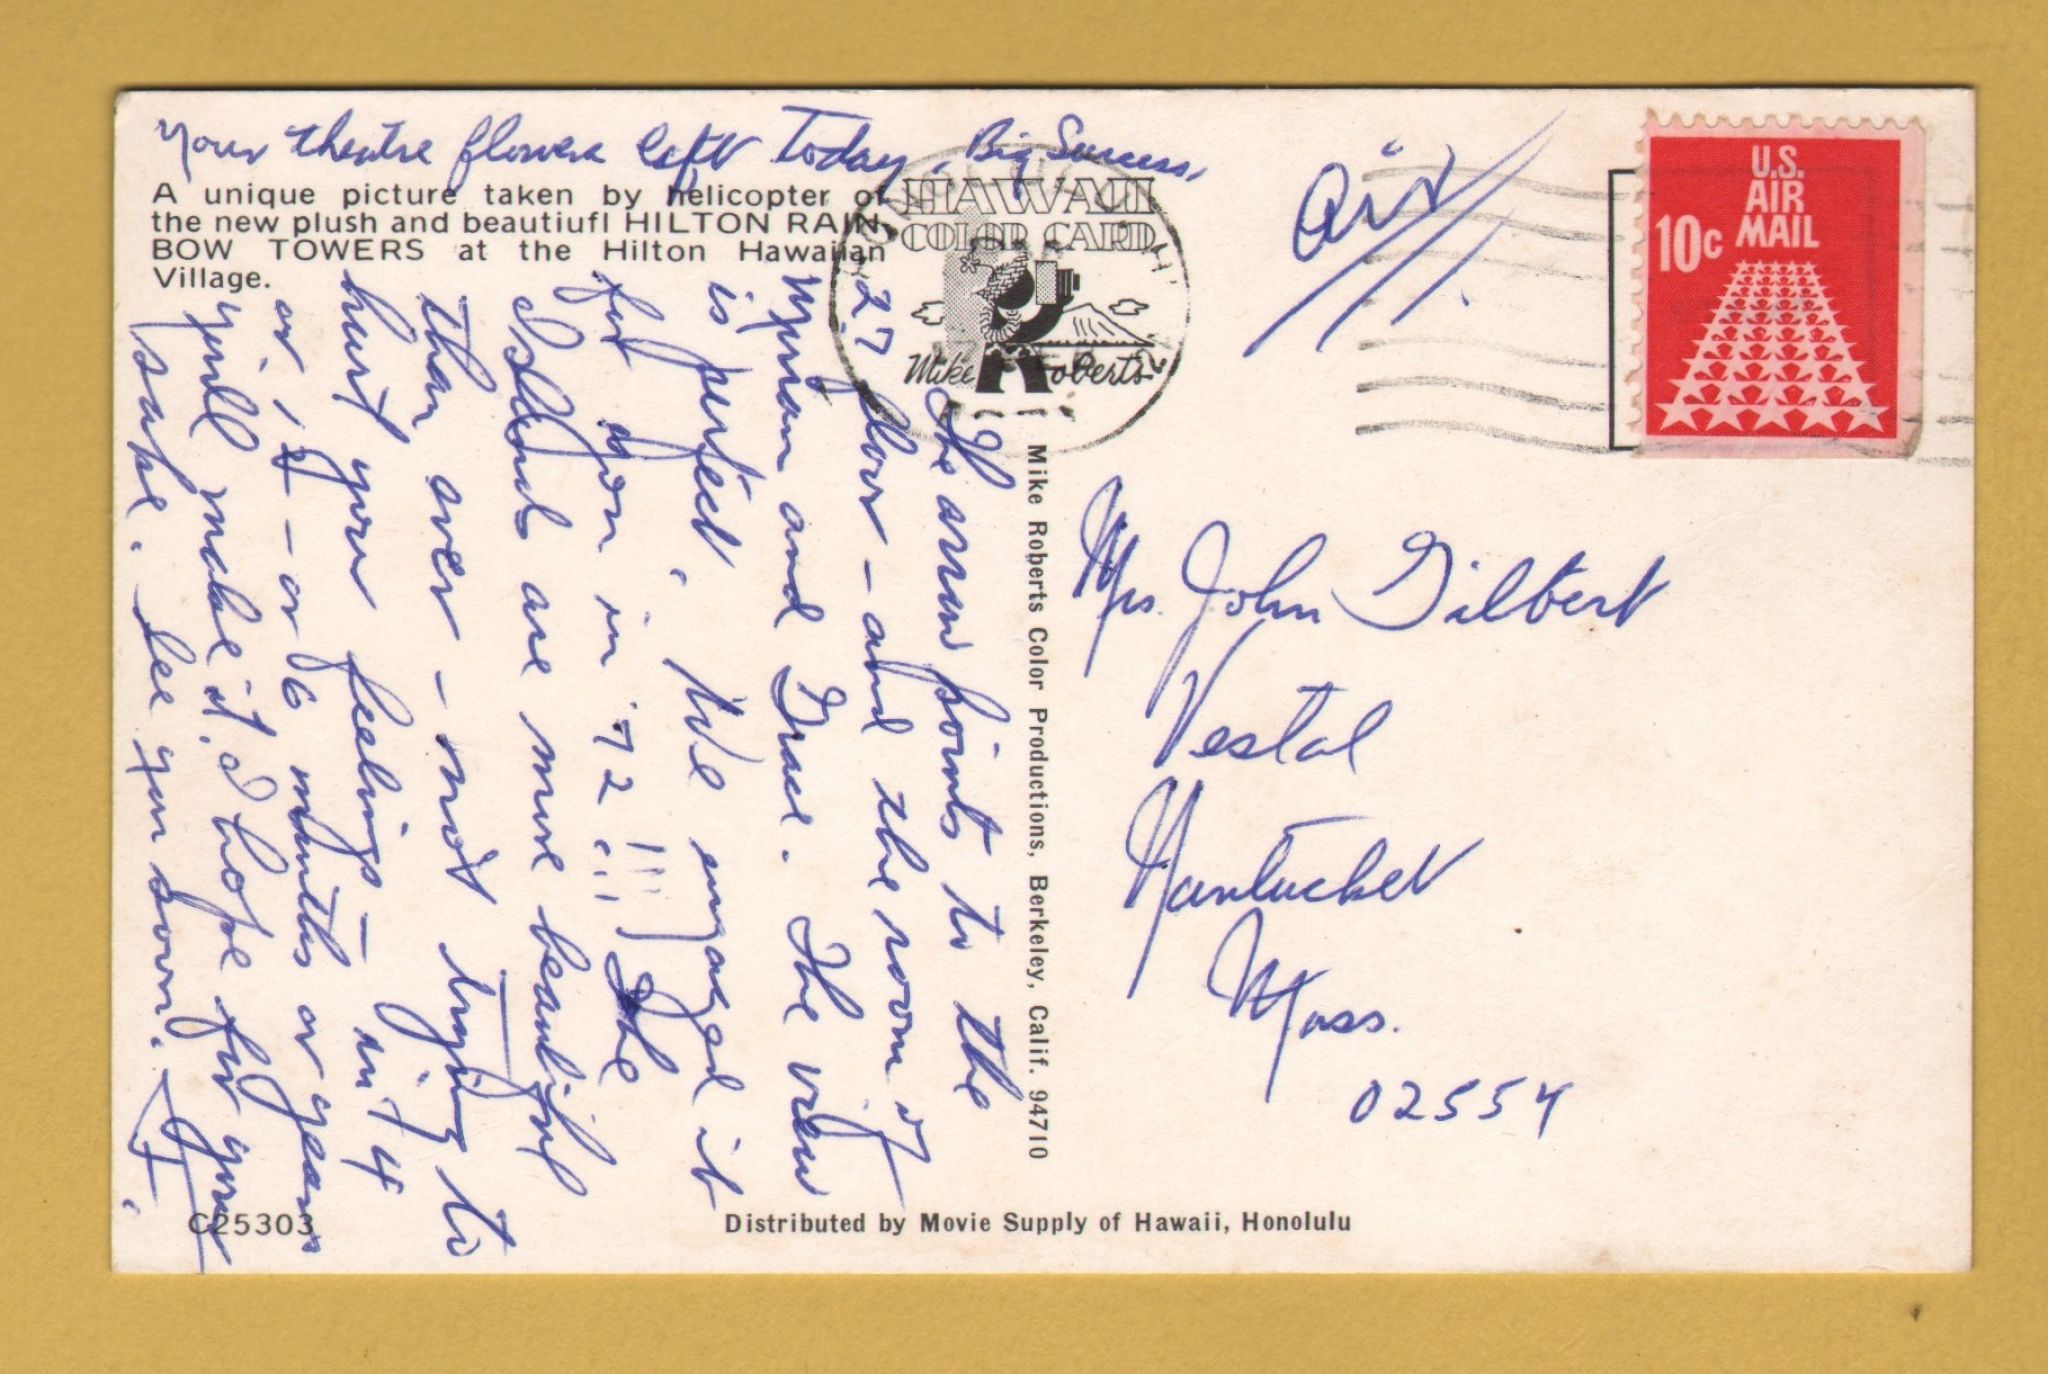 Your theatre flowers left Today, Big Success.
A unique picture taken by helicopter of
the new plush and beautiufl HILTON RAIN-
BOW TOWERS at the Hilton Hawaiian
Village.
HAWAII
COLOR CARD
Mike Roberts
The arrow points to the
27 floor – and the room of
Myriam and Grace. The view
is perfect. We engaged it
for you in '72!!! The
Islands are more beautiful
than ever – not trying to
hurt your feelings – in 4
or, 5 – or 6 months or years
you'll make it, I hope for your
sake. See you soon.
Mike Roberts Color Productions, Berkeley, Calif. 94710
air
U.S.
AIR
MAIL
10c
Mrs. John Gilbert
Vestal
Nantucket
Mass.
02554
C25303
Distributed by Movie Supply of Hawaii, Honolulu